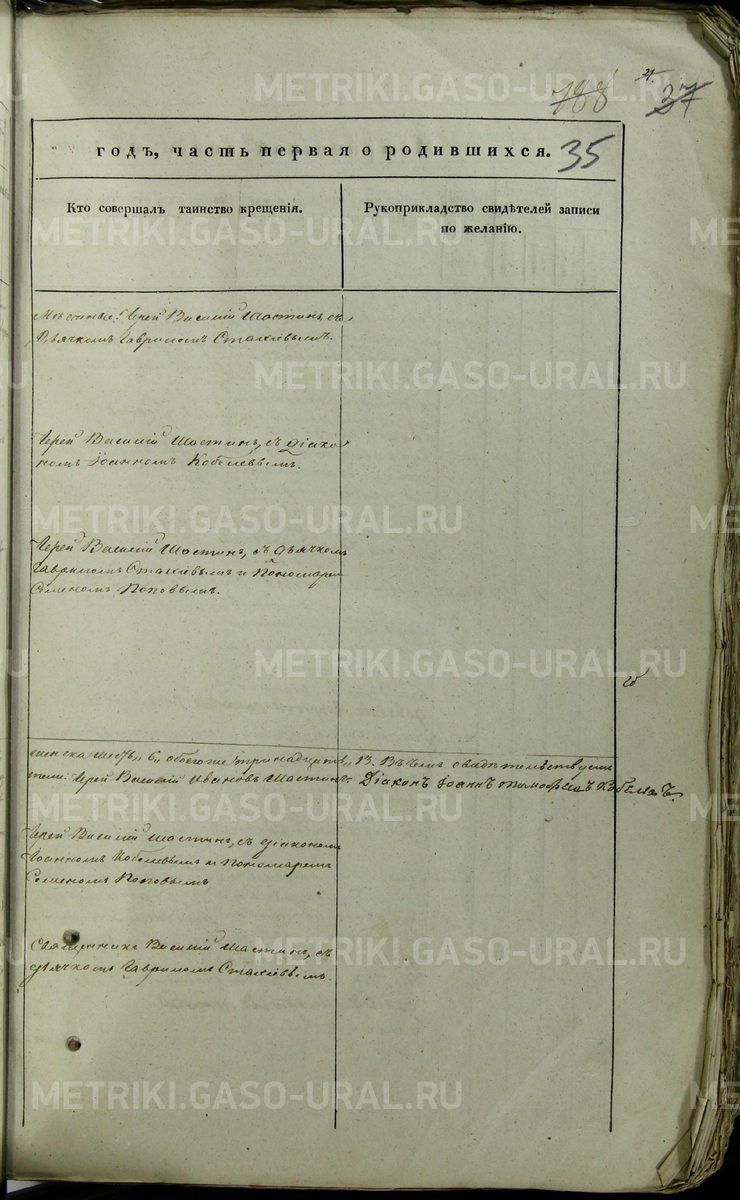 188 21. 37
годъ, часть первая о родившихся. 35
Кто совершалъ таинство крещенія.
Рукоприкладство свидѣтелей записи
по желанію.
Мѣстные: Іерей Василій Шастинъ, съ
Дьячкомъ Гавриломъ Стахіевымъ.
Іерей Василій Шастинъ, съ Діако-
номъ Іоанномъ Кобелевымъ.
Іерей Василій Шастинъ, съ Дьячкомъ
Гавриломъ Стахіевымъ и Пономаремъ
Семеномъ Поповымъ.
женска шесть, 6, обоего же тринадцать, 13. Въ чемъ свидѣтельствуемъ
Іерей Василій Ивановъ Шастинъ. Діаконъ Іоаннъ Кобелевъ.
Іерей Василій Шастинъ, съ діакономъ
Іоанномъ Кобелевымъ и Пономаремъ
Семеномъ Поповымъ
Священникъ Василій Шастинъ, съ
дьячкомъ Гавриломъ Стахіевымъ.
METRIKI.GASO-URAL.RU